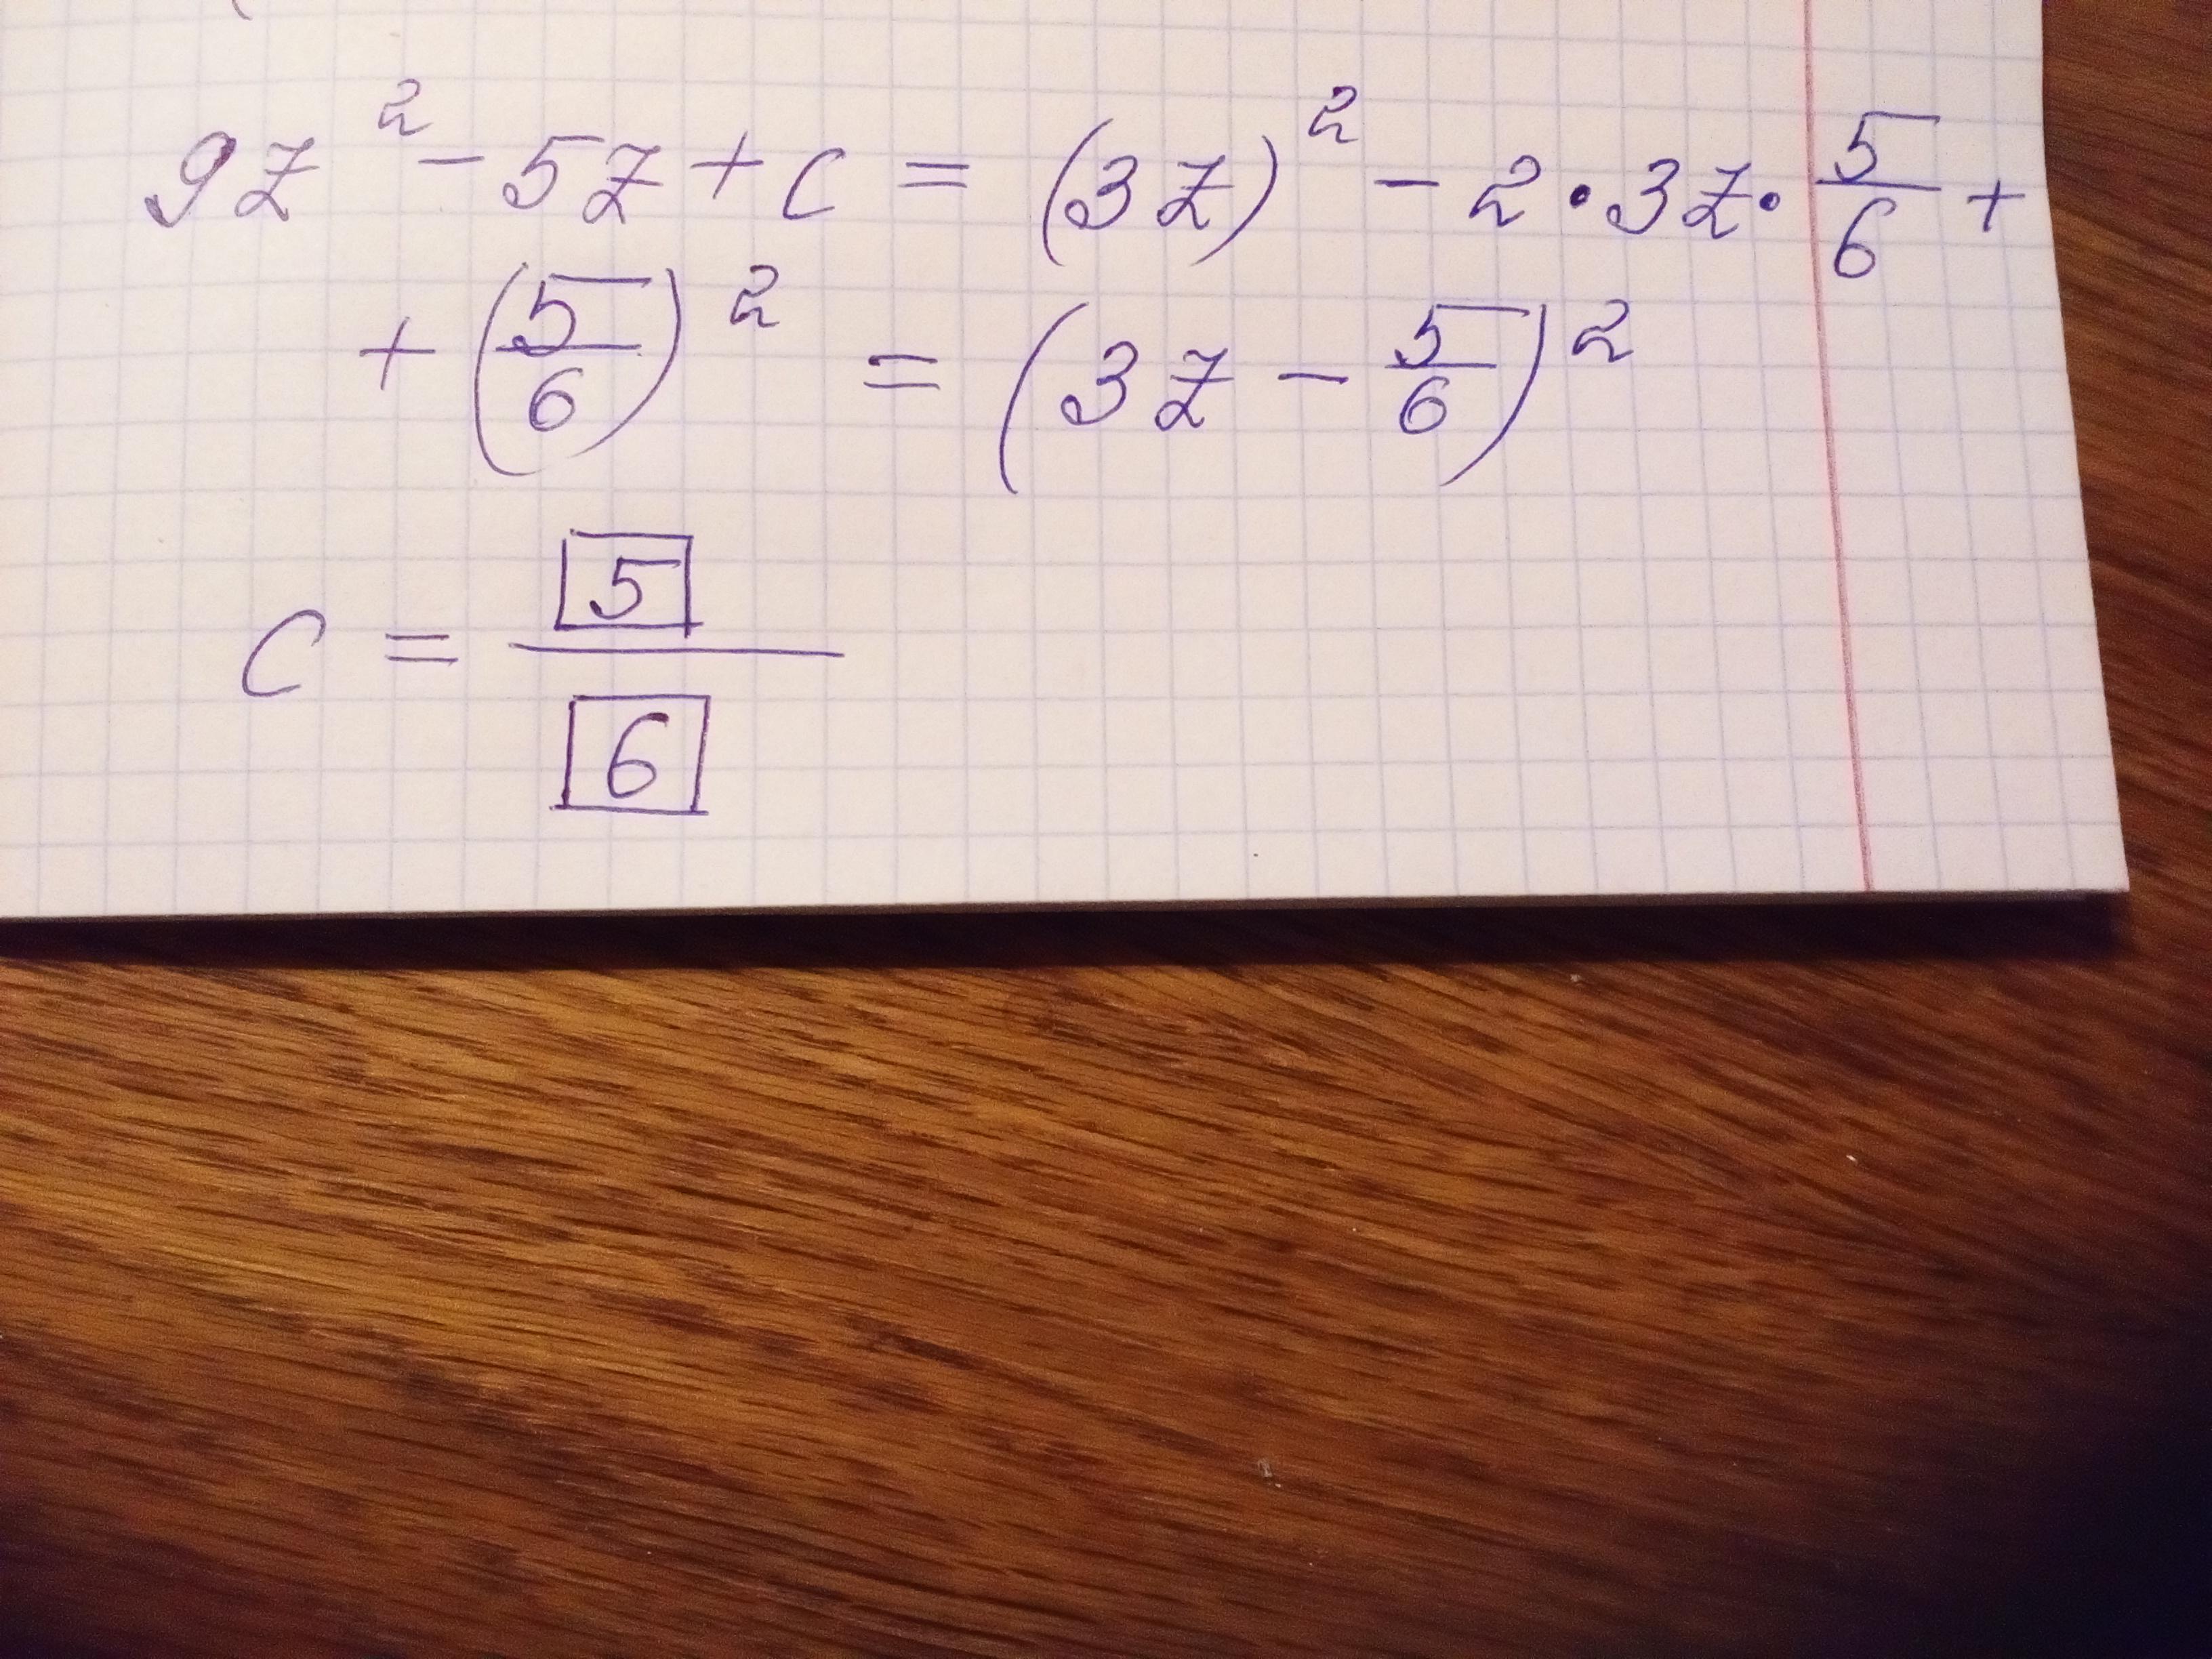 9z² - 5z + c = (3z)² - 2 · 3z · 5/6 +
+ (5/6)² = (3z - 5/6)²
c = 5/6